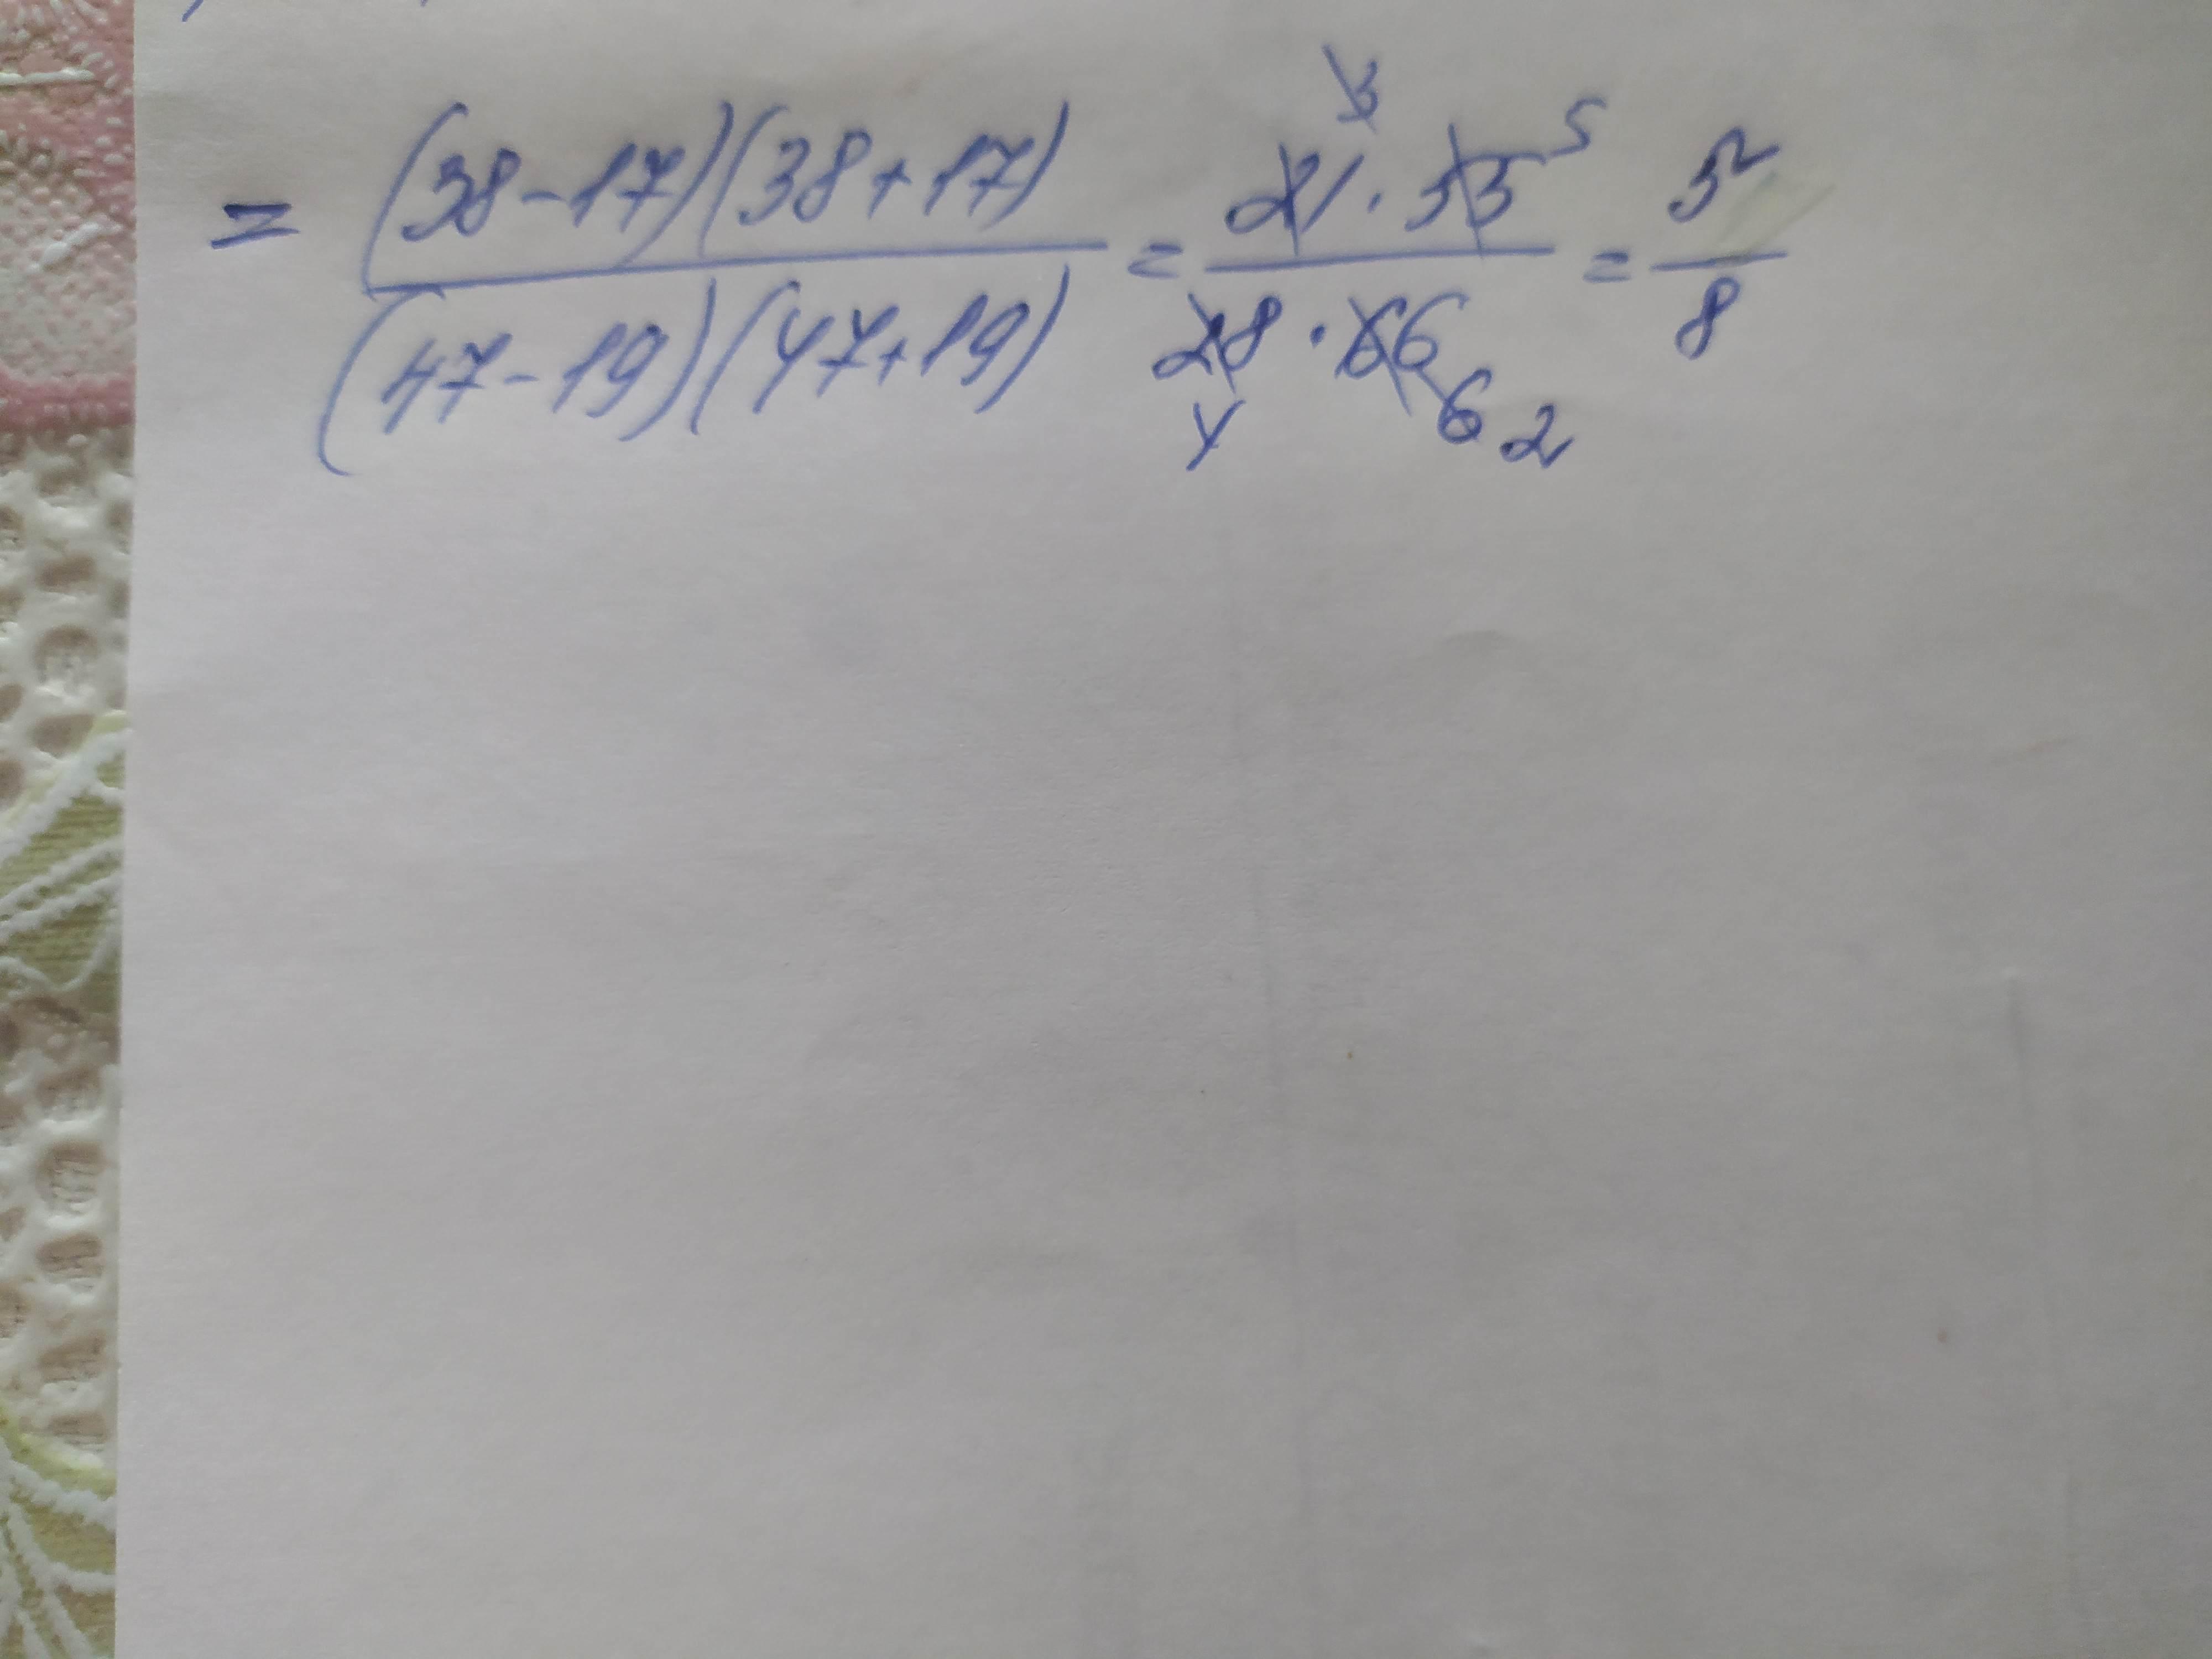 = (38-17)(38+17) / (47-19)(47+19) = 21 · 55 / 28 · 66 = 5 / 8
3 5
4 6 2